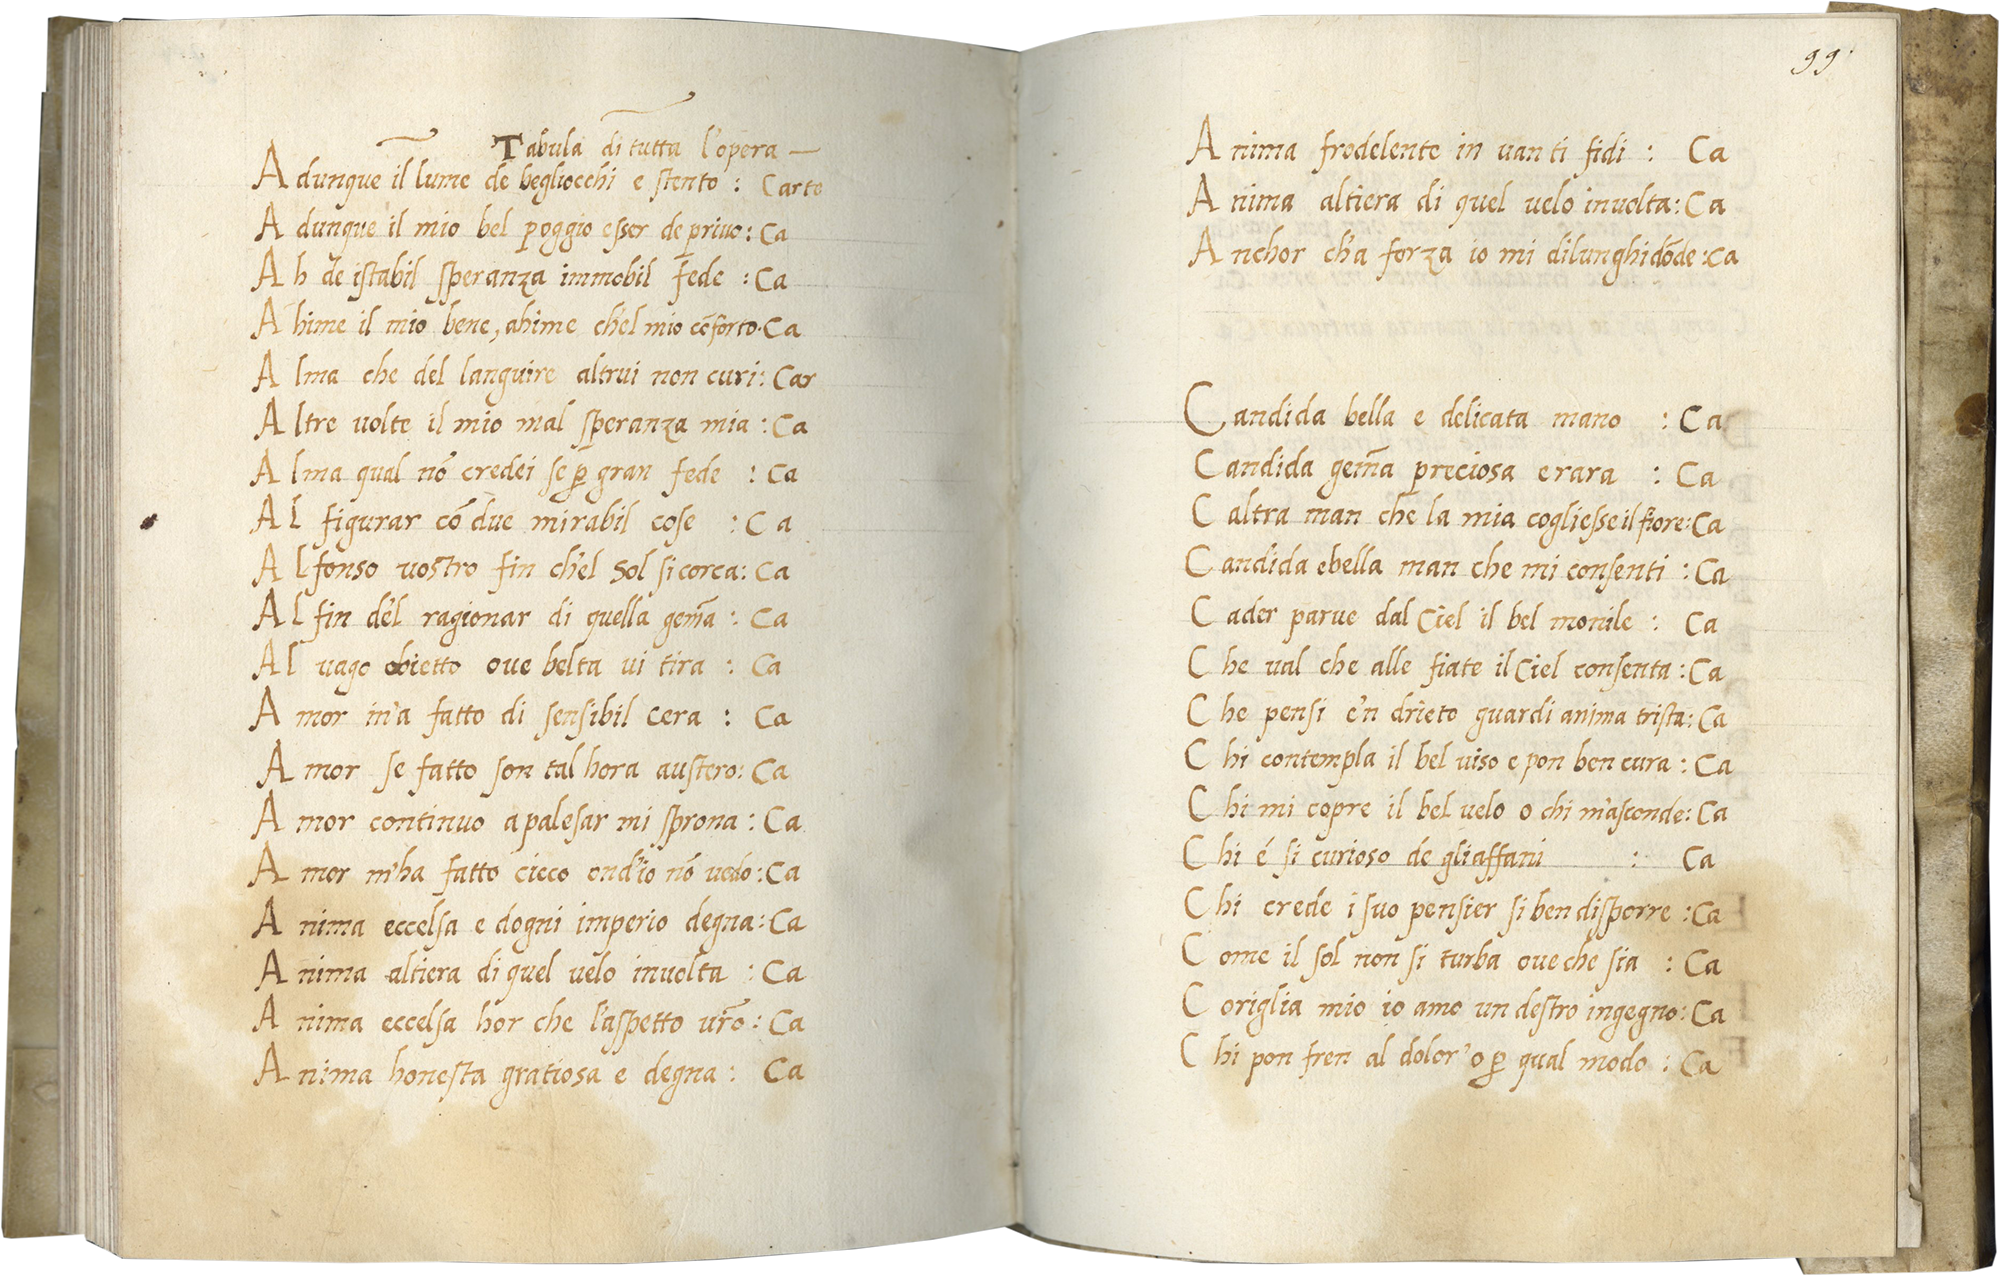 Tabula di tutta l'opera —
Adunque il lume de begliocchi e stento : Carte
Adunque il mio bel poggio esser de privo : Ca
Ah de istabil speranza immobil fede : Ca
Ahime il mio bene, ahime ch'el mio cōforto. Ca
Alma che del languire altrui non curi : Car
Altre volte il mio mal speranza mia : Ca
Alma qual nō credei se ꝑ gran fede : Ca
Al figurar cō due mirabil cose : Ca
Alfonso vostro fin ch'el Sol si corca : Ca
Al fin del ragionar di quella gem̄a : Ca
Al vago obietto ove belta vi tira : Ca
Amor m'a fatto di sensibil cera : Ca
Amor se fatto son tal hora austero : Ca
Amor continuo a palesar mi sprona : Ca
Amor m'ha fatto cieco ond'io nō vedo : Ca
Anima eccelsa e dogni imperio degna : Ca
Anima altiera di quel velo involta : Ca
Anima eccelsa hor che l'aspetto vr̄o : Ca
Anima honesta gratiosa e degna : Ca
99
Anima frodelente in van ti fidi : Ca
Anima altiera di quel velo involta : Ca
Anchor ch'a forza io mi dilunghi dōde : Ca
Candida bella e delicata mano : Ca
Candida gem̄a preciosa e rara : Ca
C altra man che la mia cogliesse il fiore : Ca
Candida e bella man che mi consenti : Ca
Cader parve dal Ciel il bel monile : Ca
Che val che alle fiate il Ciel consenta : Ca
Che pensi e'n drieto guardi anima trista : Ca
Chi contempla il bel viso e pon ben cura : Ca
Chi mi copre il bel velo o chi m'asconde : Ca
Chi é si curioso de gli affani : Ca
Chi crede i suo pensier si ben disporre : Ca
Come il sol non si turba ove che sia : Ca
Coriglia mio io amo un destro ingegno : Ca
Chi pon fren al dolor' o ꝑ qual modo : Ca